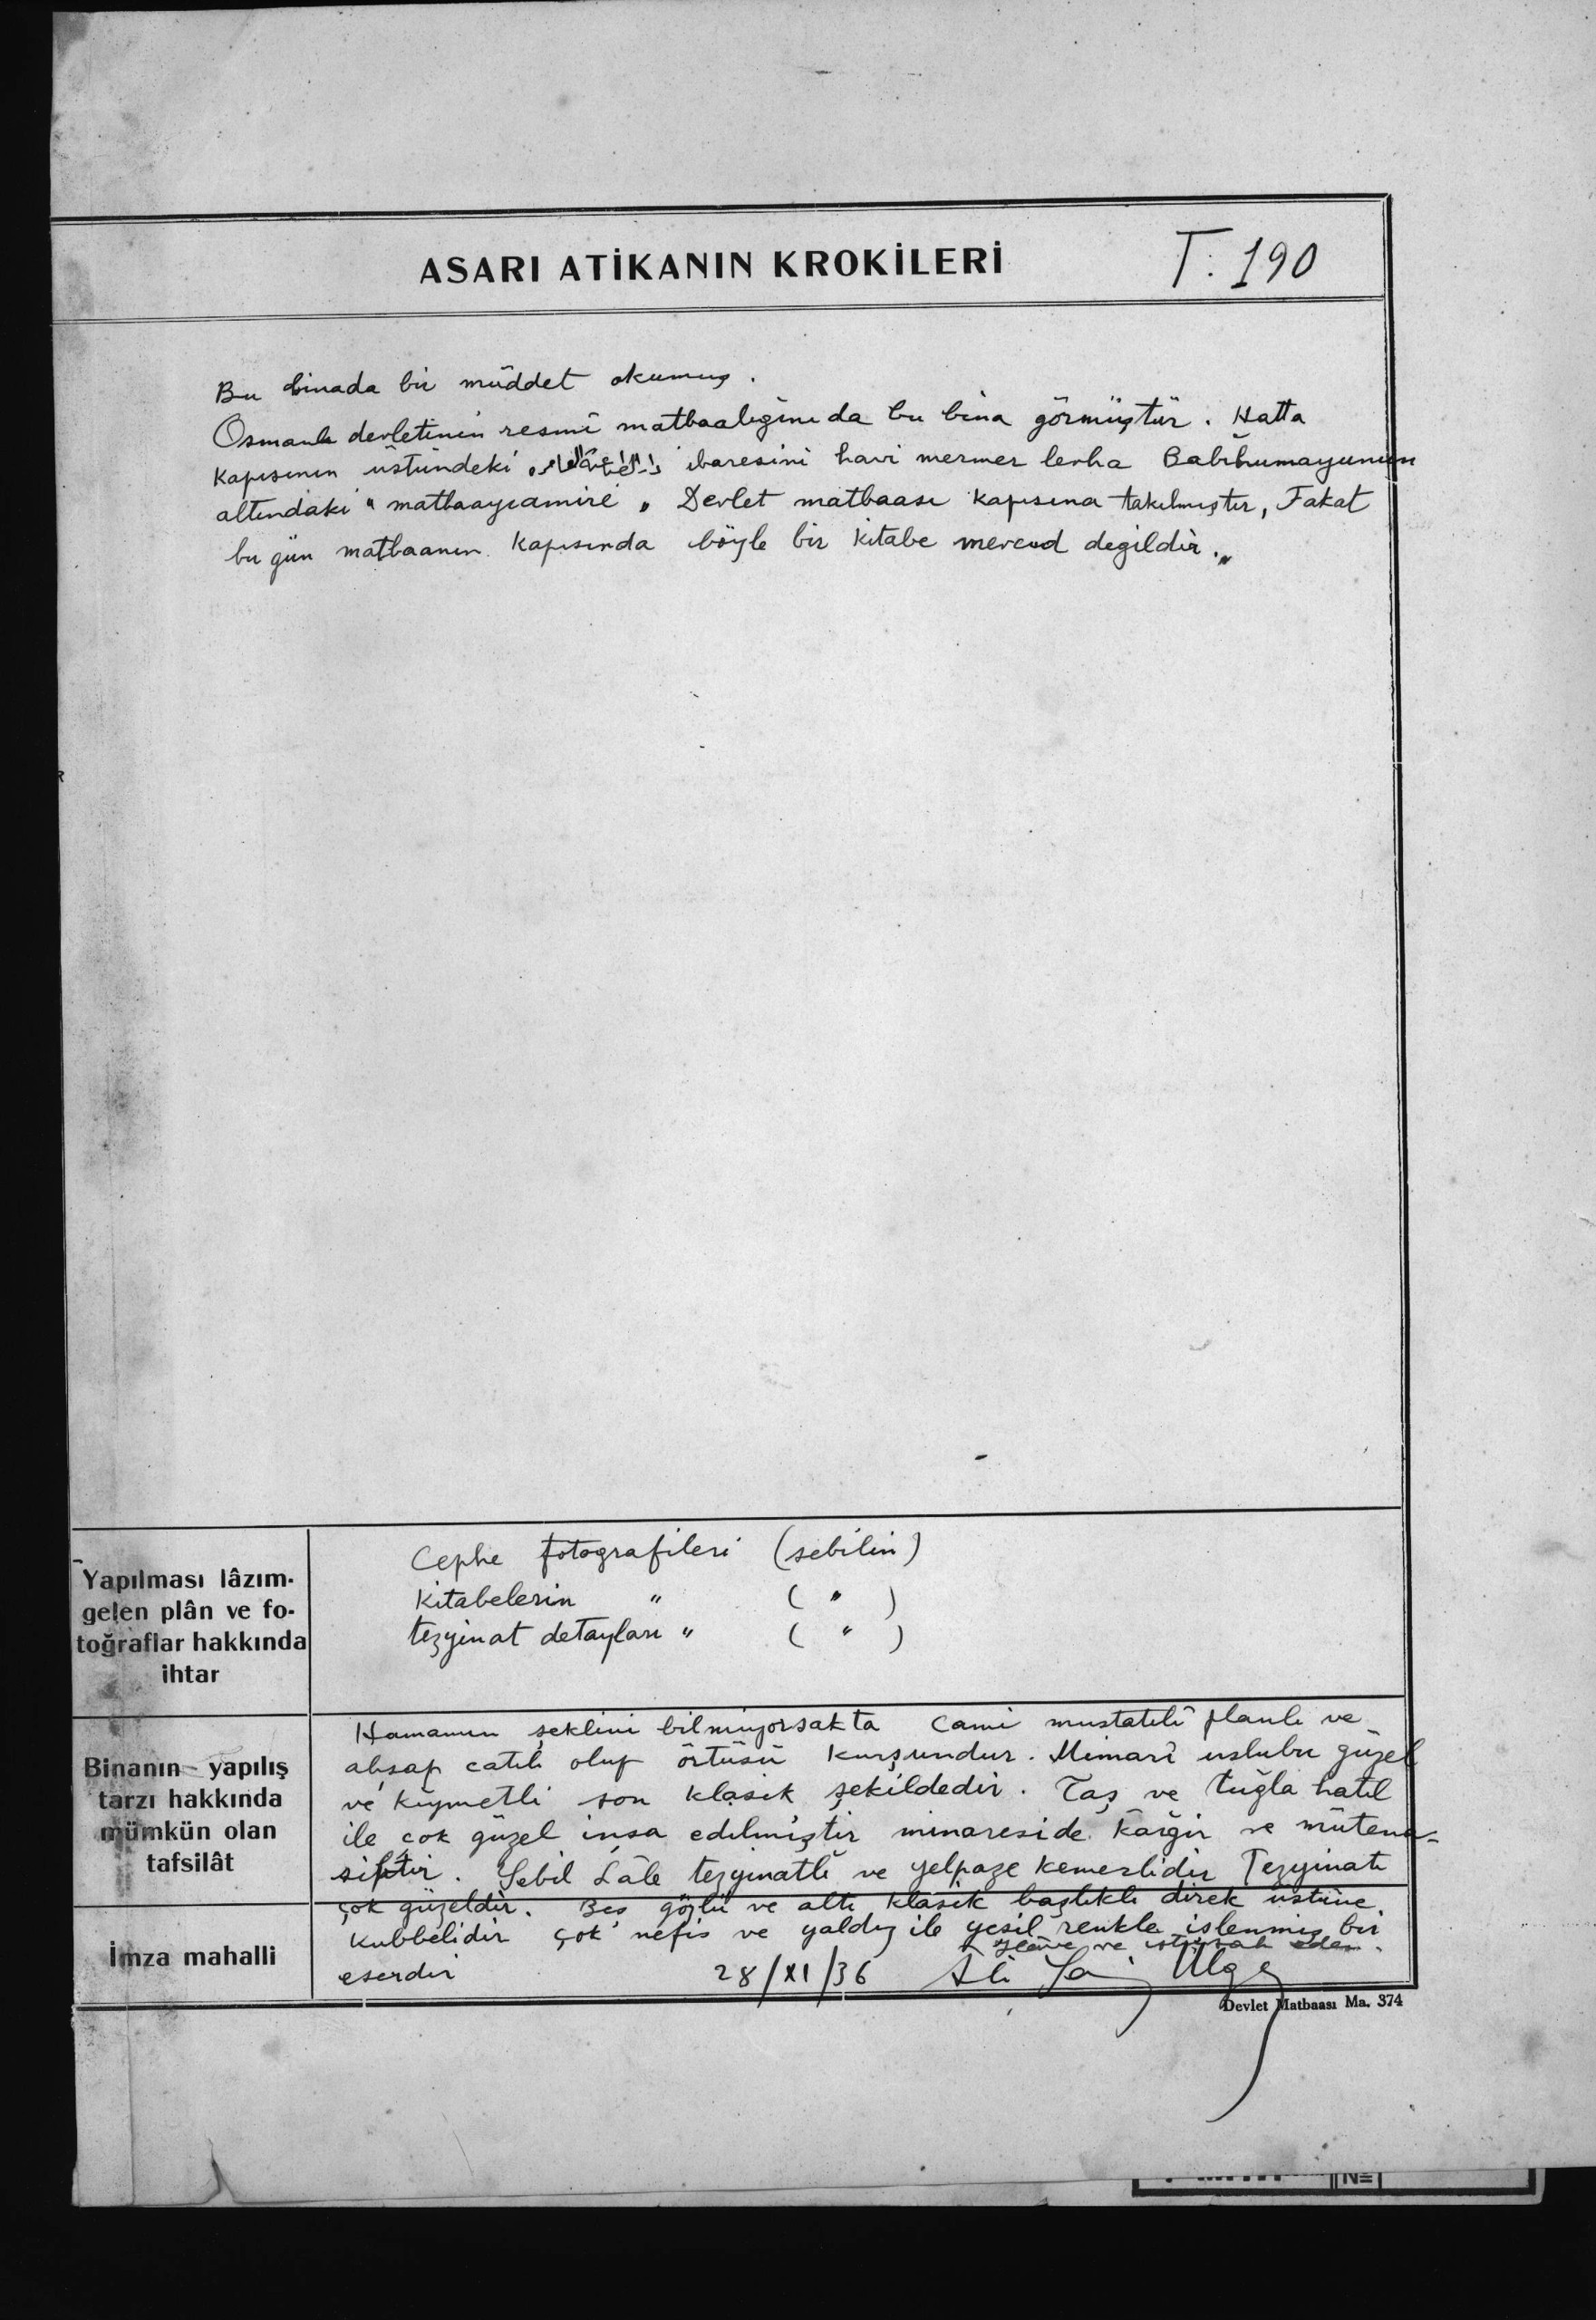 ASARI ATİKANIN KROKİLERİ
T. 190
Bu binada bir müddet okumuş.
Osmanlı devletinin resmî matbaalığını da bu bina görmüştür. Hatta
kapısının üstündeki ibaresini havi mermer levha Babıhumayunun
altındaki " matbaayıamire " Devlet matbaası kapısına takılmıştır, Fakat
bu gün matbaanın kapısında böyle bir kitabe mevcud degildir."
Yapılması lâzım-
gelen plân ve fo-
toğraflar hakkında
ihtar
Cephe fotografileri (sebilin)
Kitabelerin " ( " )
tezyinat detayları " ( " )
Binanın yapılış
tarzı hakkında
mümkün olan
tafsilât
Hamamın şeklini bilmiyorsakta Cami mustatilî planlı ve
ahşap catılı olup örtüsü kurşundur. Mimarî uslubu güzel
ve kıymetli son klasik şekildedir. Taş ve tuğla hatıl
ile çok güzel inşa edilmiştir minareside kârğir ve mütena-
siptir. Sebil Lâle tezyinatlı ve yelpaze kemerlidir Tezyinatı
çok güzeldir. Beş gözlü ve altı klasik başlıklı direk üstüne
kubbelidir çok nefis ve yaldız ile yeşil renkle işlenmiş bir
eserdir
İmza mahalli
28/XI/36
Ali Saim Ülgen
Devlet Matbaası Ma. 374
No